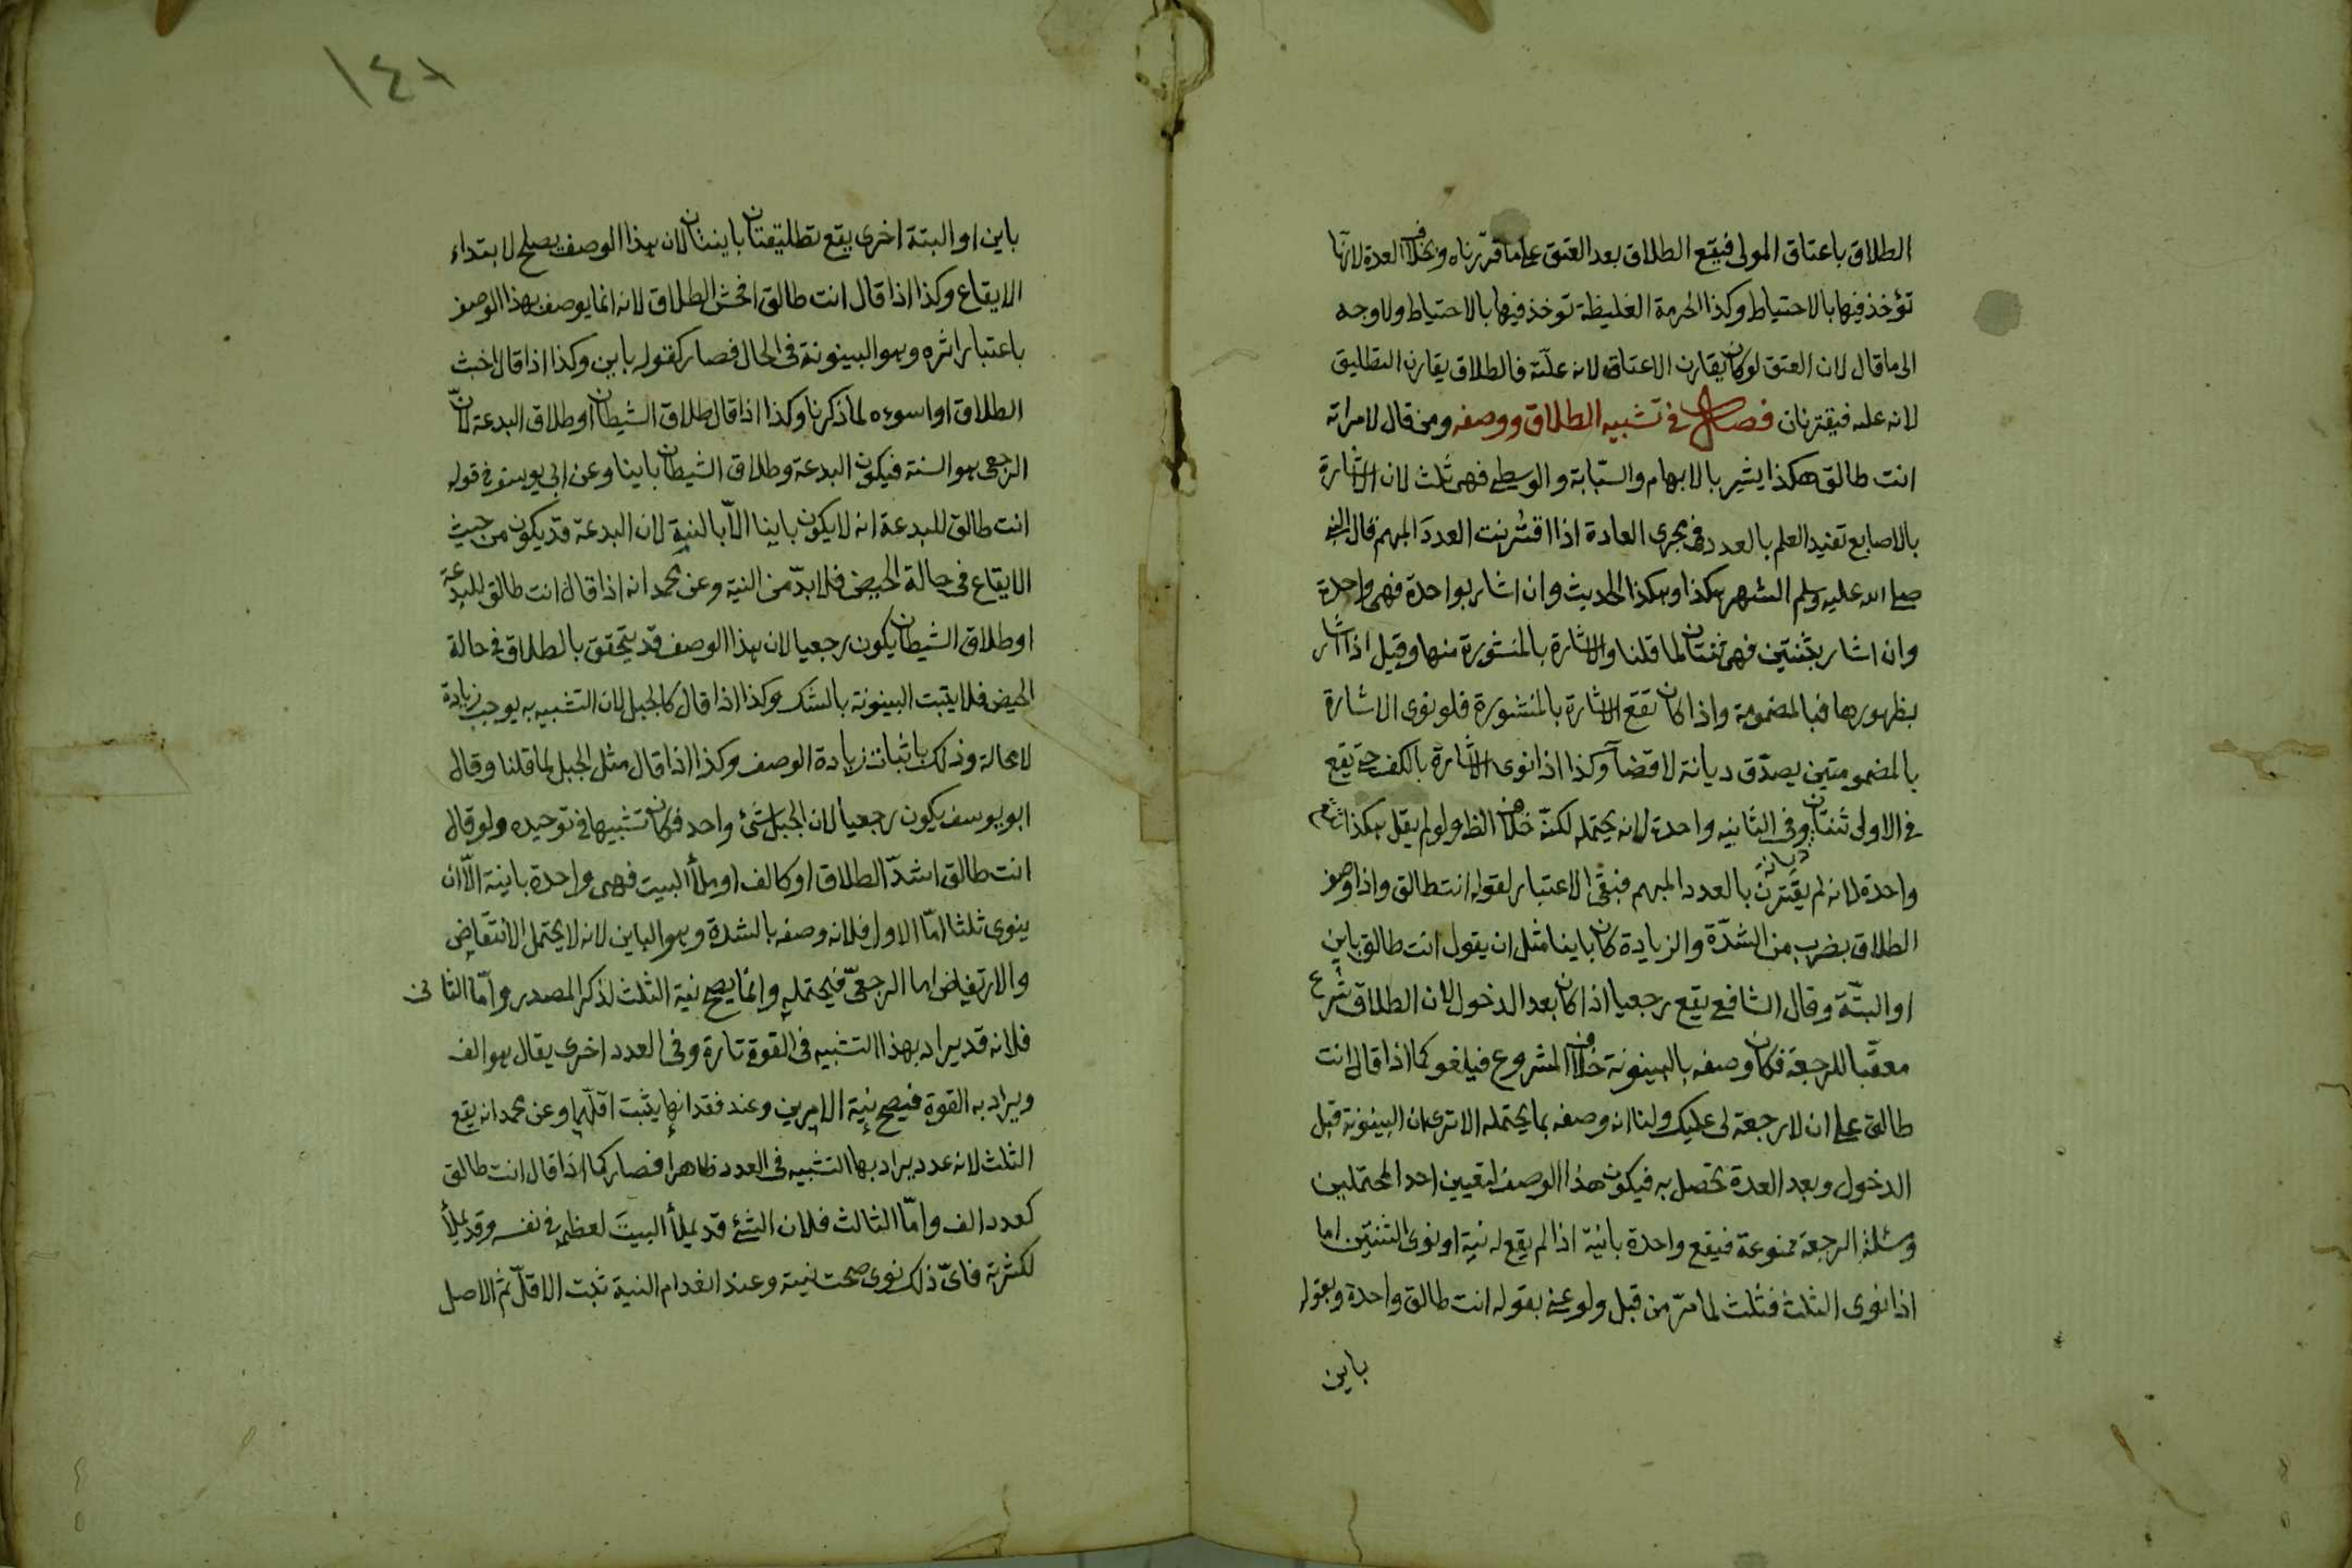 الطلاق باعتاق المولى فيقع الطلاق بعد العتق على ما قررناه وبخلاف العدة لانها
تؤخذ فيها بالاحتياط وكذا الحرمة الغليظة توخذ فيها بالاحتياط ولا وجه
الى ما قال لان العتق لو كان يقارن الاعتاق لانه علته فالطلاق يقارن التطليق
لانه علته فيقترنان فصل في تشبيه الطلاق ووصفه ومن قال لامراته
انت طالق هكذا يشير بالابهام والسبابة والوسطى فهى ثلث لان الاشارة
بالاصابع تفيد العلم بالعدد فى مجرى العادة اذا اقترنت العدد المبهم قال النبى
صلى الله عليه وسلم الشهر هكذا وهكذا الحديث وان اشار بواحدة فهى واحدة
وان اشار بثنتين فهى ثنتان لما قلنا والاشارة بالمنشورة منها وقيل اذا اشار
بظهورها فبالمضمومة واذا كان تقع الاشارة بالمنشورة فلو نوى الاشارة
بالمضمومتين يصدق ديانة لا قضآ وكذا اذا نوى الاشارة بالكف حتى يقع
فى الاولى ثنتان ديانة وفى الثانيه واحدة لانه يحتمله لكنه خلاف الظ ولو لم يقل هكذا يقع
واحدة لانه لم يقترن بالعدد المبهم فبقى الاعتبار لقوله انت طالق واذا وصف
الطلاق بضرب من الشدة والزيادة كان باينا مثل ان يقول انت طالق باين
او البتة وقال الشافعى يقع رجعيا اذا كان بعد الدخول لان الطلاق شرع
معقبا للرجعة فكان وصفه بالبينونة خلاف المشروع فيلغو كما اذا قال انت
طالق على ان لا رجعة لى عليك ولنا انه وصفه بما يحتمله الا ترى ان البينونة قبل
الدخول وبعد العدة تحصل به فيكون هذا الوصف لتعيين احد المحتملين
ومسئلة الرجعة ممنوعة فيقع واحدة باينة اذا لم يقع له نية او نوى الثنتين اما
اذا نوى الثلث فثلث لما مر من قبل ولو عنى بقوله انت طالق واحدة وبقوله
باين
١٤٨
باين او البتة اخرى يقع تطليقتان باينتان لان هذا الوصف يصلح لابتداء
الايقاع وكذا اذا قال انت طالق افحش الطلاق لانه انما يوصف بهذا الوصف
باعتبار اثره وهو البينونة فى الحال فصار كقوله باين وكذا اذا قال اخبث
الطلاق او اسوءه لما ذكرنا وكذا اذا قال طلاق الشيطان او طلاق البدعة لان
الرجعى هو السنة فيكون البدعة وطلاق الشيطان باينا وعن ابى يوسف فى قوله
انت طالق للبدعة انه لا يكون باينا الا بالنية لان البدعة قد يكون من حيث
الايقاع فى حالة الحيض فلا بد من النية وعن محمد انه اذا قال انت طالق للبدعة
او طلاق الشيطان يكون رجعيا لان هذا الوصف قد يتحقق بالطلاق فى حالة
الحيض فلا يثبت البينونة بالشك وكذا اذا قال كالجبل لان التشبيه به يوجب زيادة
لا محالة وذلك باثبات زيادة الوصف وكذا اذا قال مثل الجبل لما قلنا وقال
ابو يوسف يكون رجعيا لان الجبل شئ واحد فكان تشبيها فى توحيده ولو قال
انت طالق اشد الطلاق او كالف او ملأ البيت فهى واحدة باينة الا ان
ينوى ثلثا اما الاول فلانه وصفه بالشدة وهو الباين لانه لا يحتمل الانتقاض
والارتفاض اما الرجعى فيحتمله وانما يصح نية الثلث لذكر المصدر واما الثانى
فلانه قد يراد بهذا التشبيه فى القوة تارة وفى العدد اخرى يقال هو الف
ويراد به القوة فيصح نية الامرين وعند فقدانها يثبت اقلهما وعن محمد انه يقع
الثلث لانه عدد يراد بها التشبيه فى العدد ظاهرا فصار كما اذا قال انت طالق
كعدد الف واما الثالث فلان الشئ قد يملأ البيت لعظمه فى نفسه وقد يملأ
لكثرته فاى ذلك نوى صحت نيته وعند انعدام النية ثبت الاقل ثم الاصل